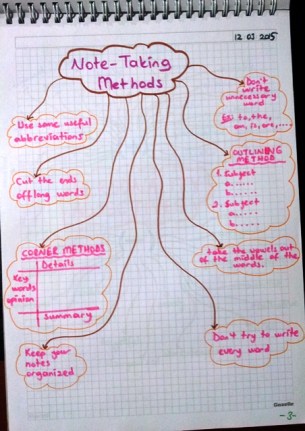 12 03 2015
Note-Taking
Methods
Don't
write
unnecessary
word
Ex: to, the,
am, is, are,....
Use some useful
abbreviations
OUTLINING
METHOD
1. Subject
a. .....
b. .....
2. Subject
a. .....
b. .....
Cut the ends
off long words
take the vowels out
of the middle of the
words.
CORNER METHODS
Details
Key
words
opinion
Summary
Don't try to write
every word
Keep your
notes
organized
-3-